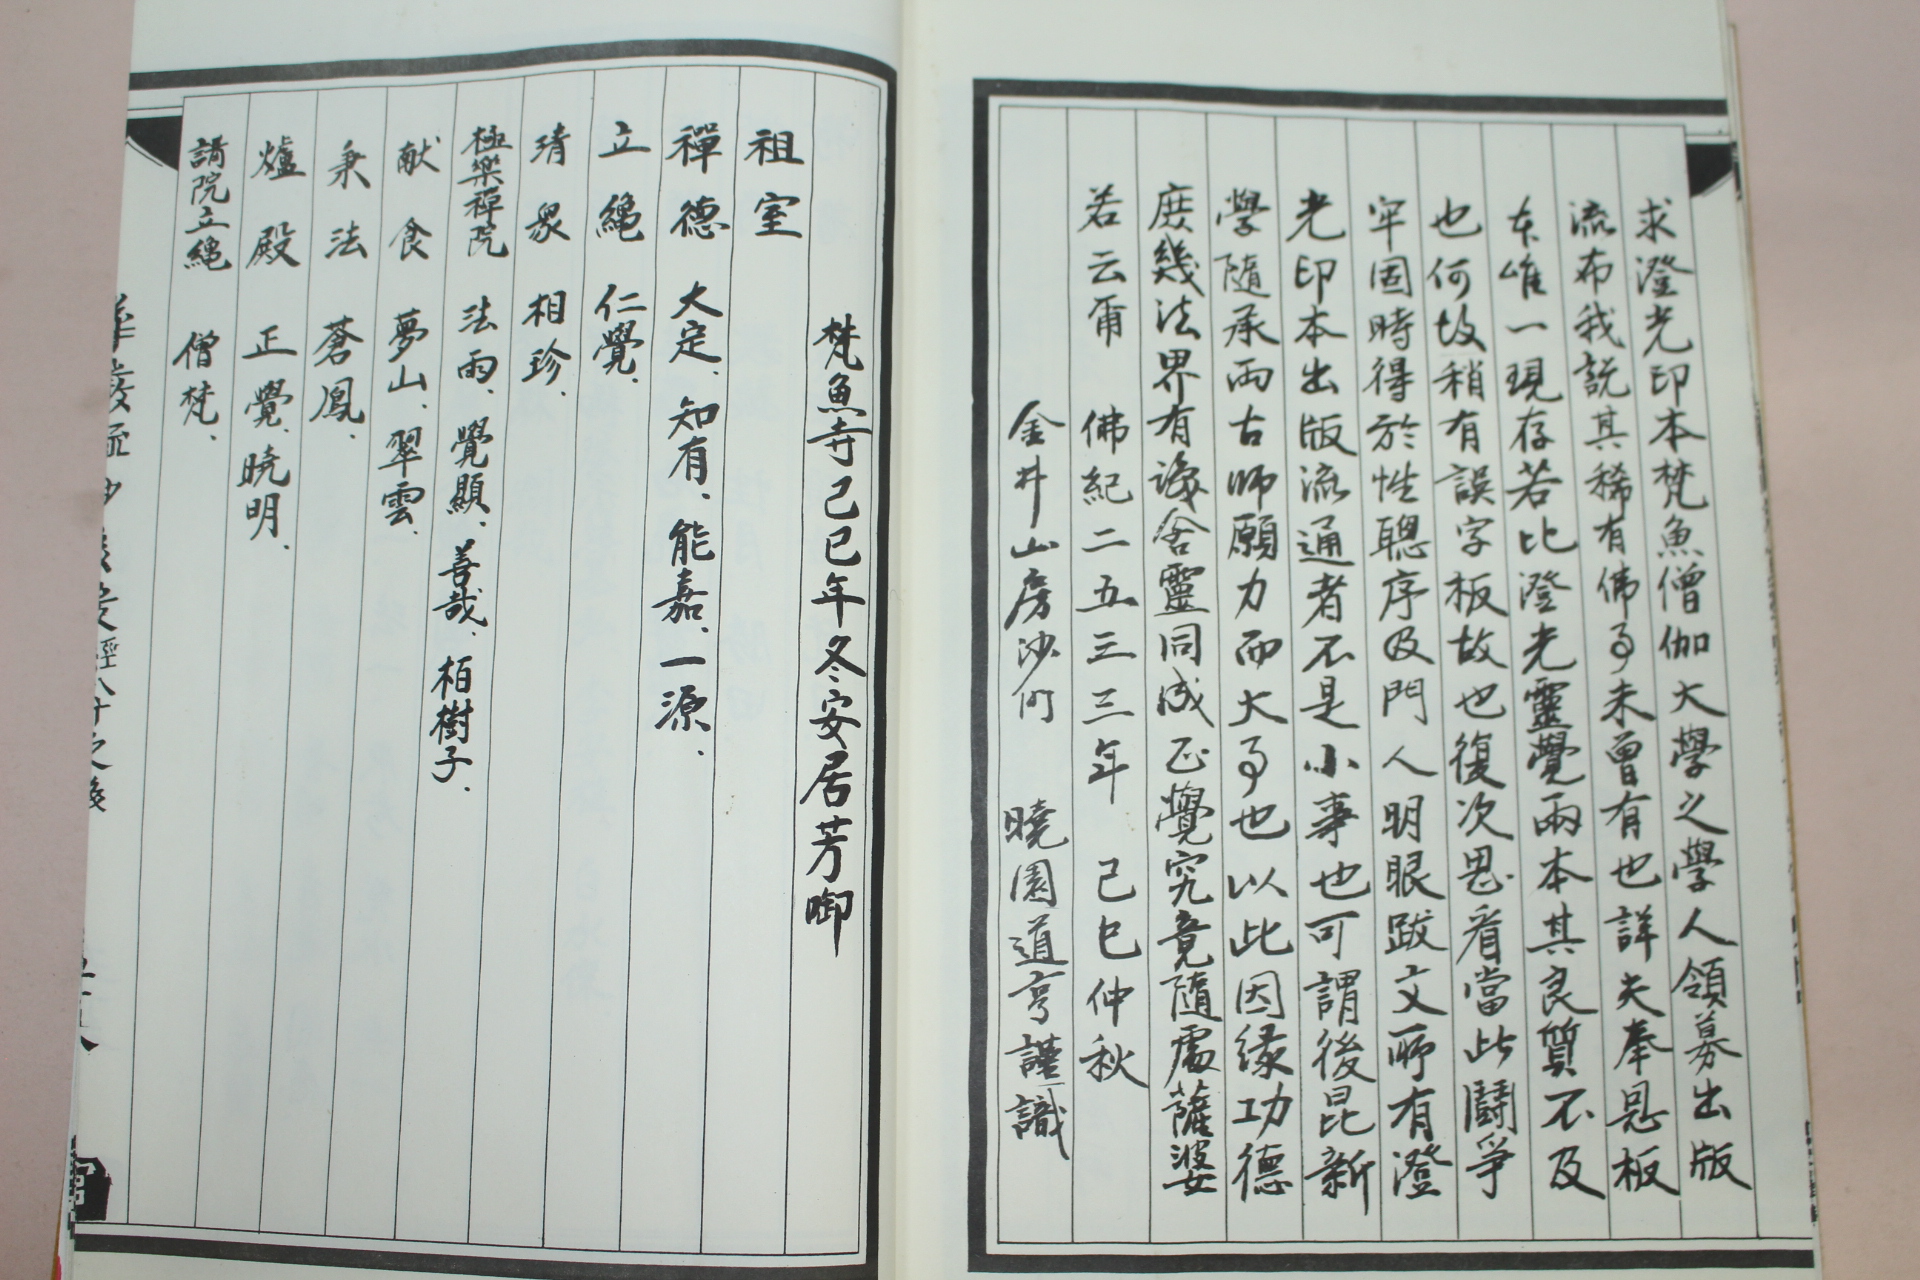 求澄光印本梵魚僧伽大學之學人領募出版
流布我說其稀有佛事未曾有也詳夫奉恩板
本唯一現存若比澄光靈覺兩本其良質不及
也何故稍有誤字板故也復次思看當此鬪爭
牢固時得於性聰序及門人明眼跋文所有澄
光印本出版流通者不是小事也可謂後昆新
學隨承兩古師願力而大事也以此因緣功德
庶幾法界有識含靈同成正覺究竟隨處薩婆
若云爾 佛紀二五三三年 己巳仲秋
金井山房沙門 曉園道亨謹識
梵魚寺己巳年冬安居芳啣
祖室
禪德 大定、知有、能嘉、一源、
立繩 仁覺、
清衆 相珍、
極樂禪院 法雨、覺顯、善哉、栢樹子、
献食 夢山、翠雲、
秉法 蒼鳳、
爐殿 正覺、曉明、
講院立繩 僧梵、